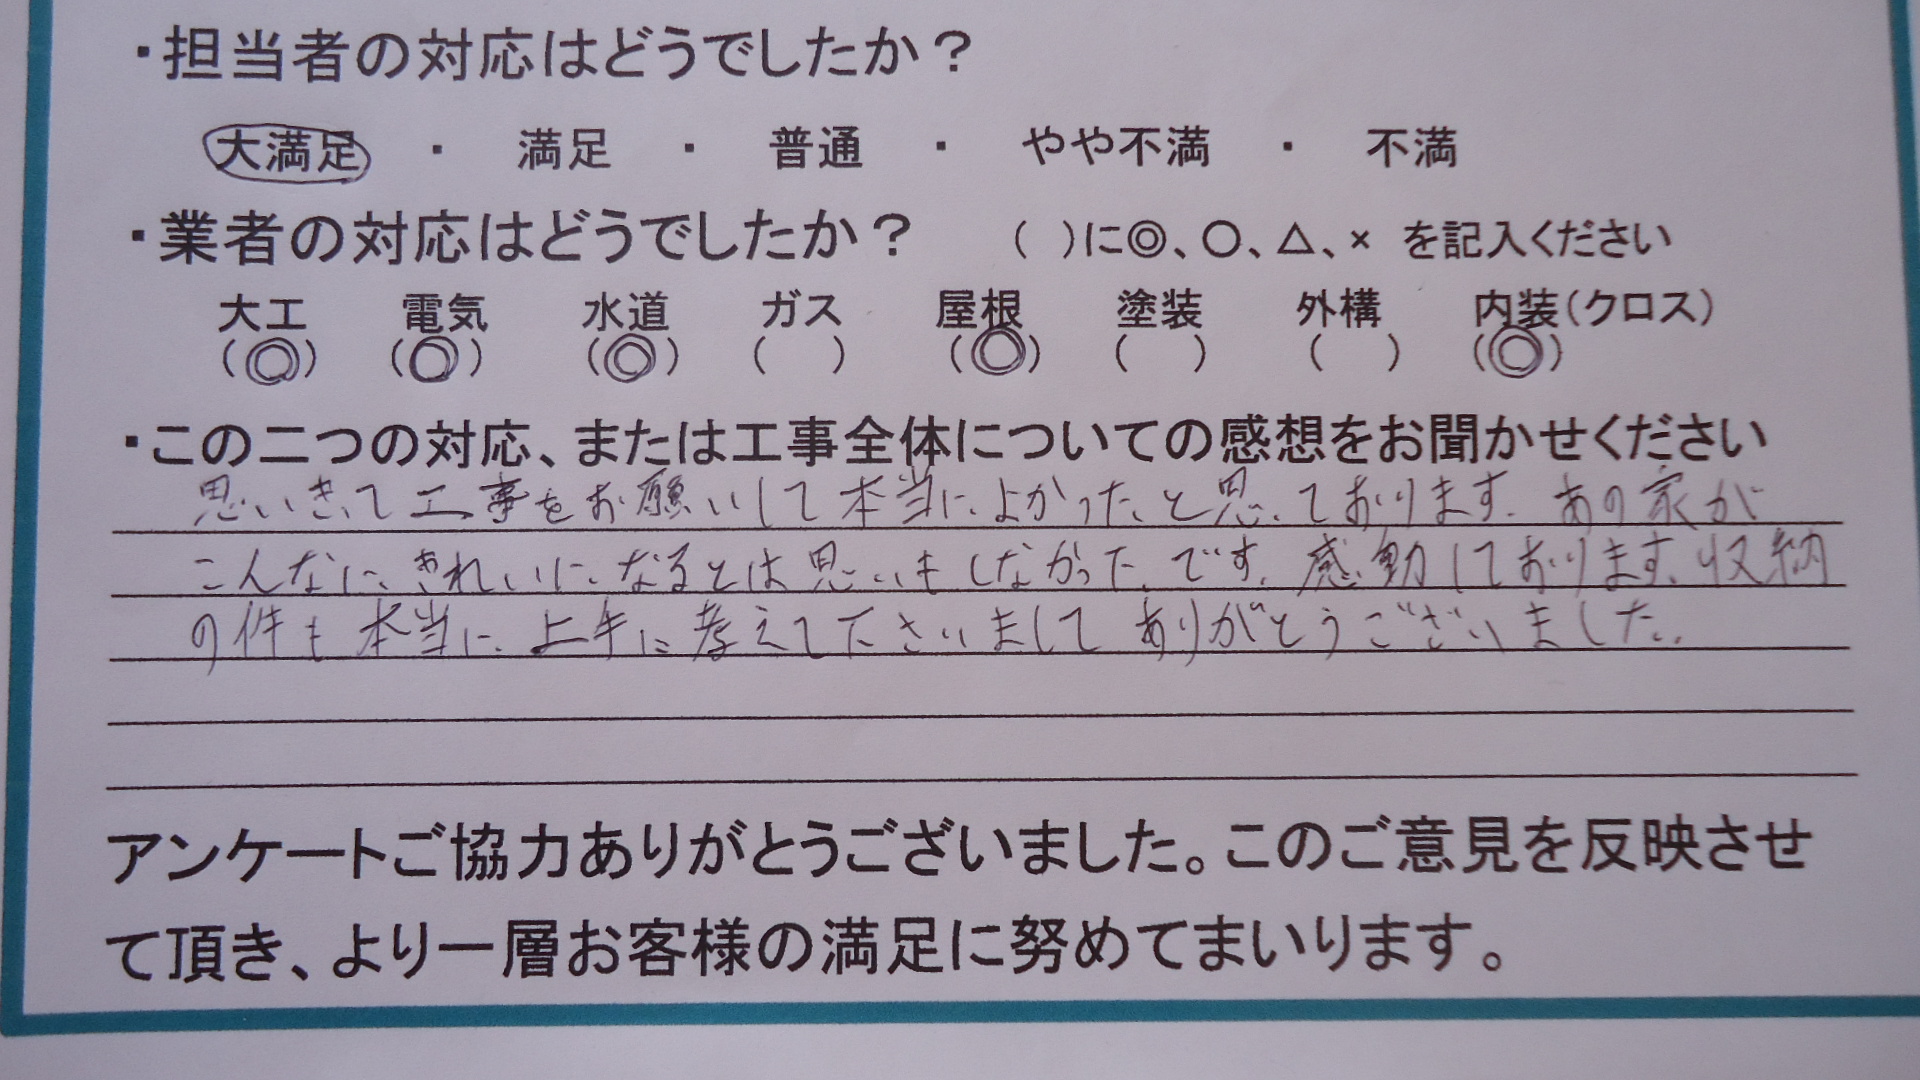 ・担当者の対応はどうでしたか？
大満足 ・ 満足 ・ 普通 ・ やや不満 ・ 不満
・業者の対応はどうでしたか？ （ ）に◎、○、△、× を記入ください
大工 電気 水道 ガス 屋根 塗装 外構 内装（クロス）
（◎） （◎） （◎） （ ） （◎） （ ） （ ） （◎）
・この二つの対応、または工事全体についての感想をお聞かせください
思いきって工事をお願いして本当によかったと思っております。あの家が
こんなにきれいになるとは思いもしなかったです。感動しております。収納
の件も本当に上手に考えて下さいましてありがとうございました。
アンケートご協力ありがとうございました。このご意見を反映させ
て頂き、より一層お客様の満足に努めてまいります。